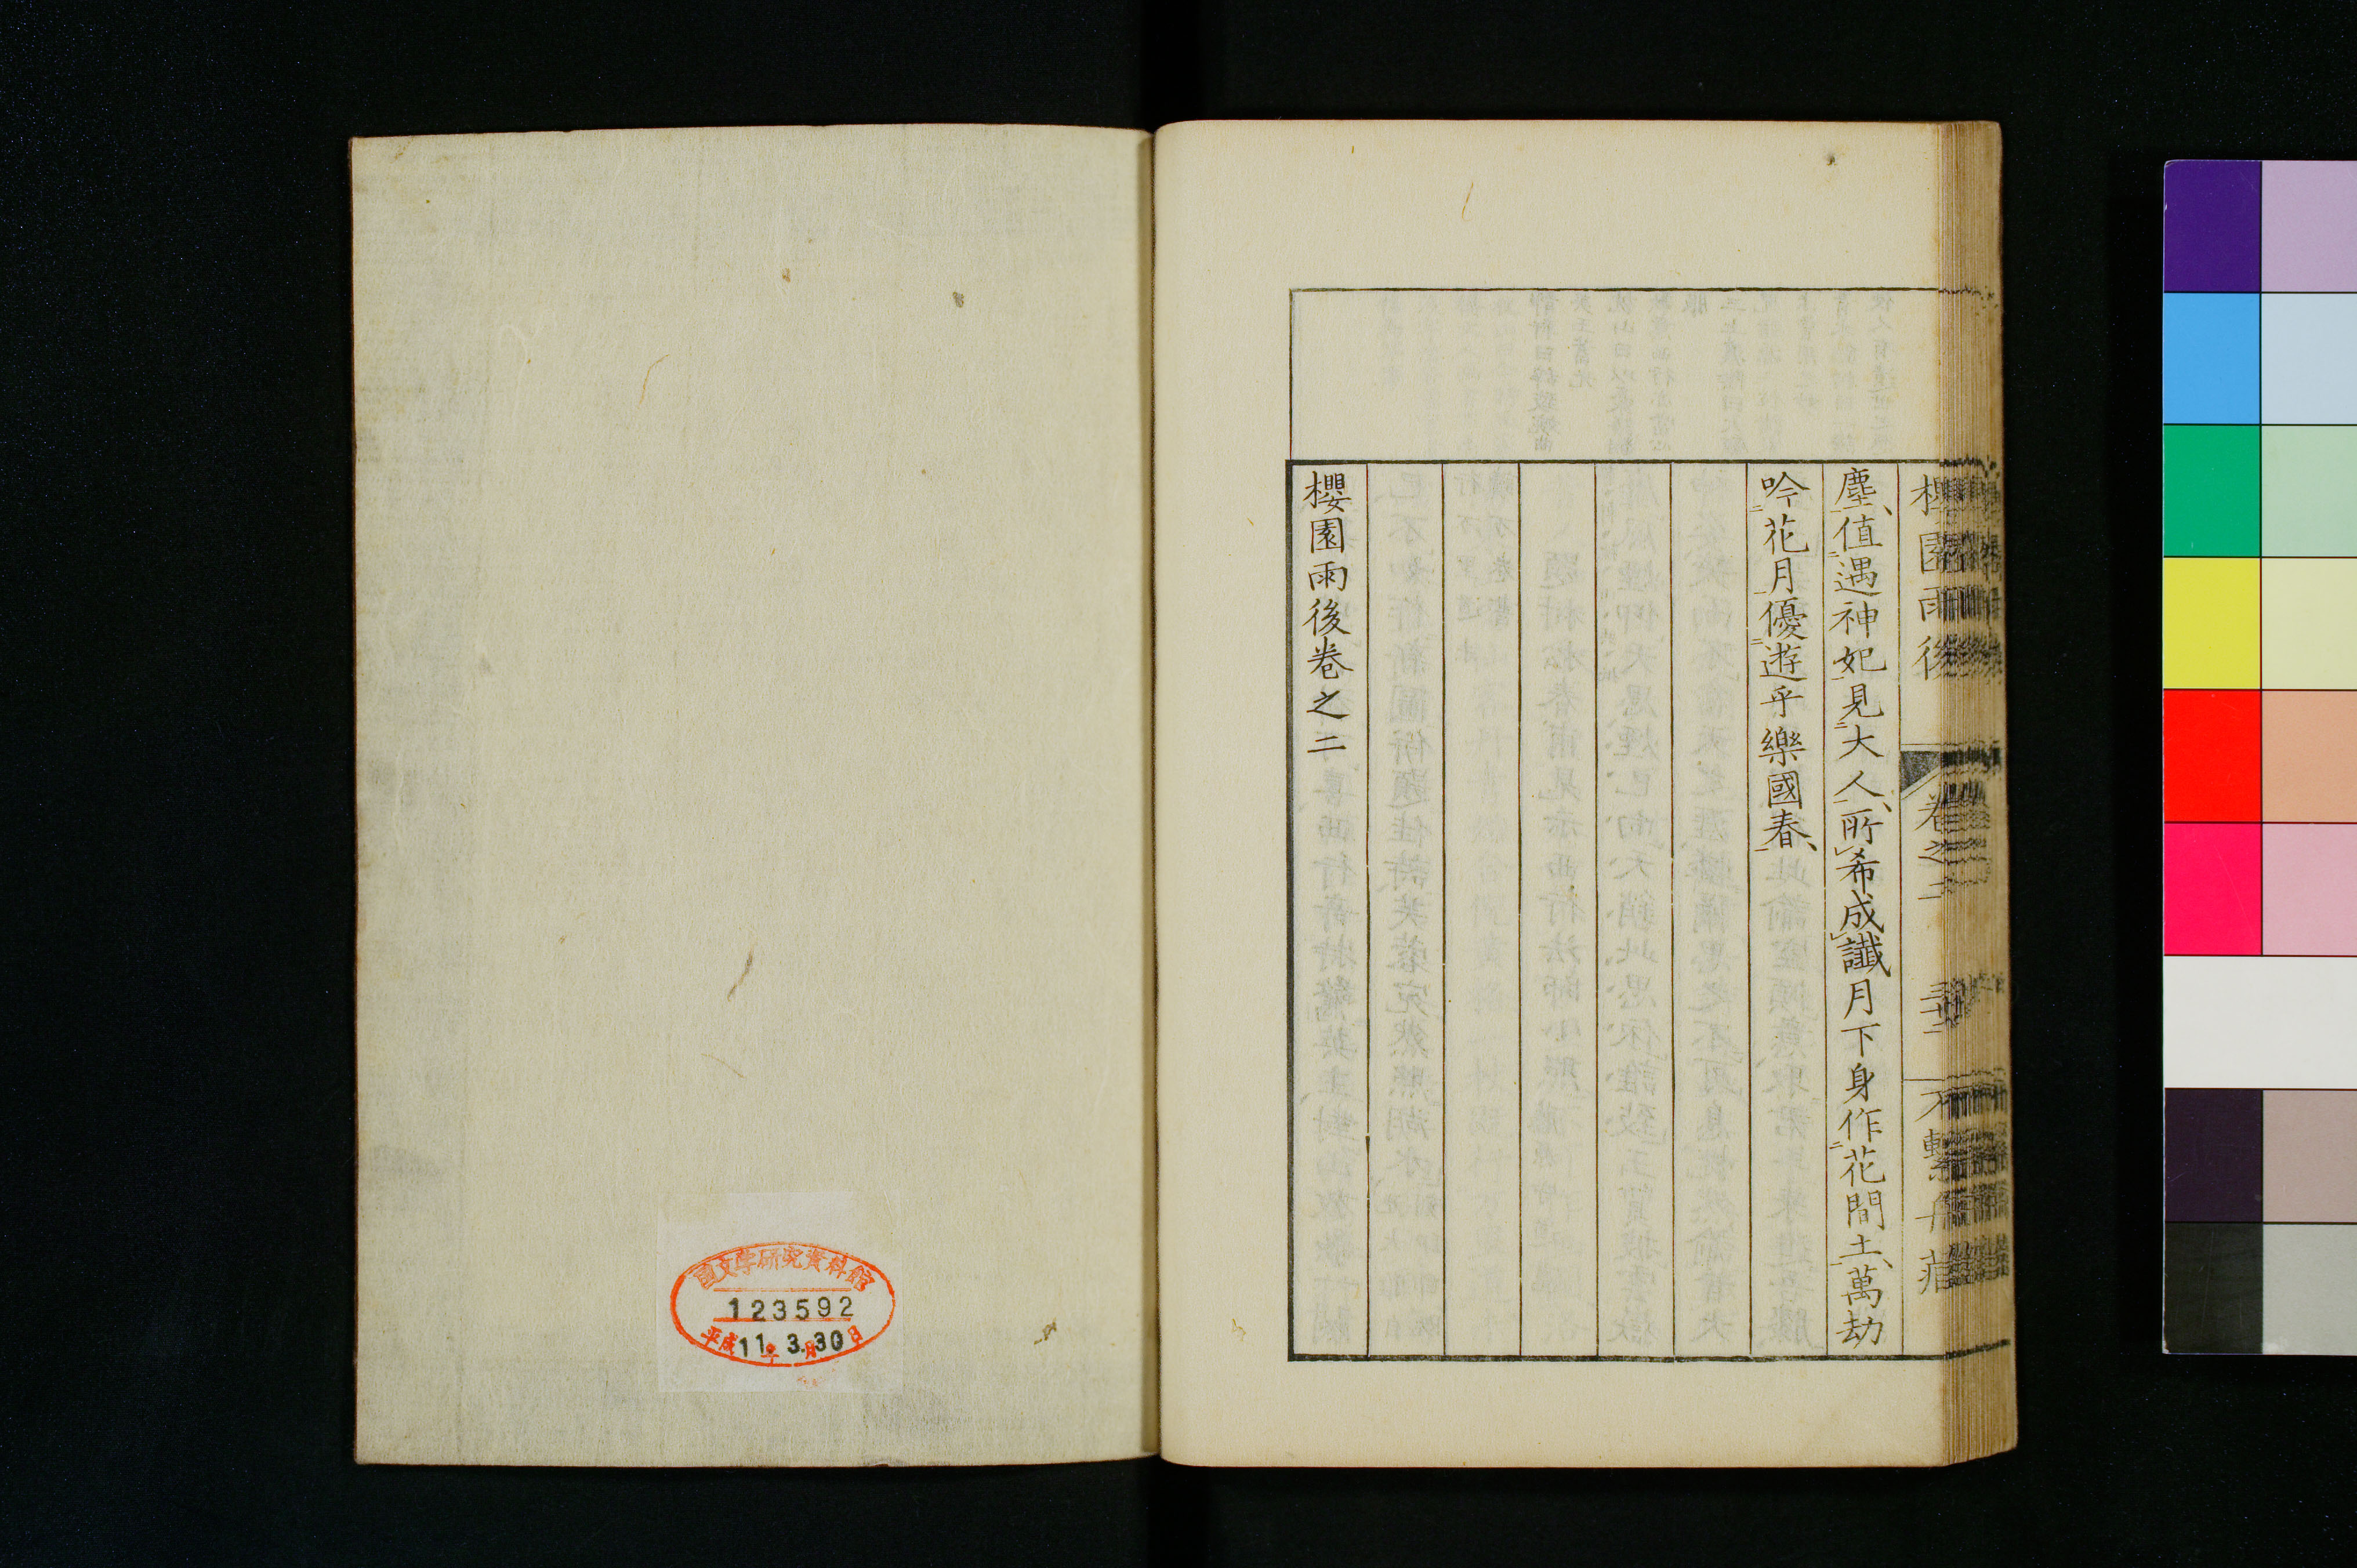 櫻園雨後 卷之二 三十二 不繫舟莊
塵值遇神妃見大人所希成讖月下身作花間土萬劫
吟花月優遊乎樂國春
櫻園雨後卷之二
國文学研究資料館
123592
平成11年3月30日